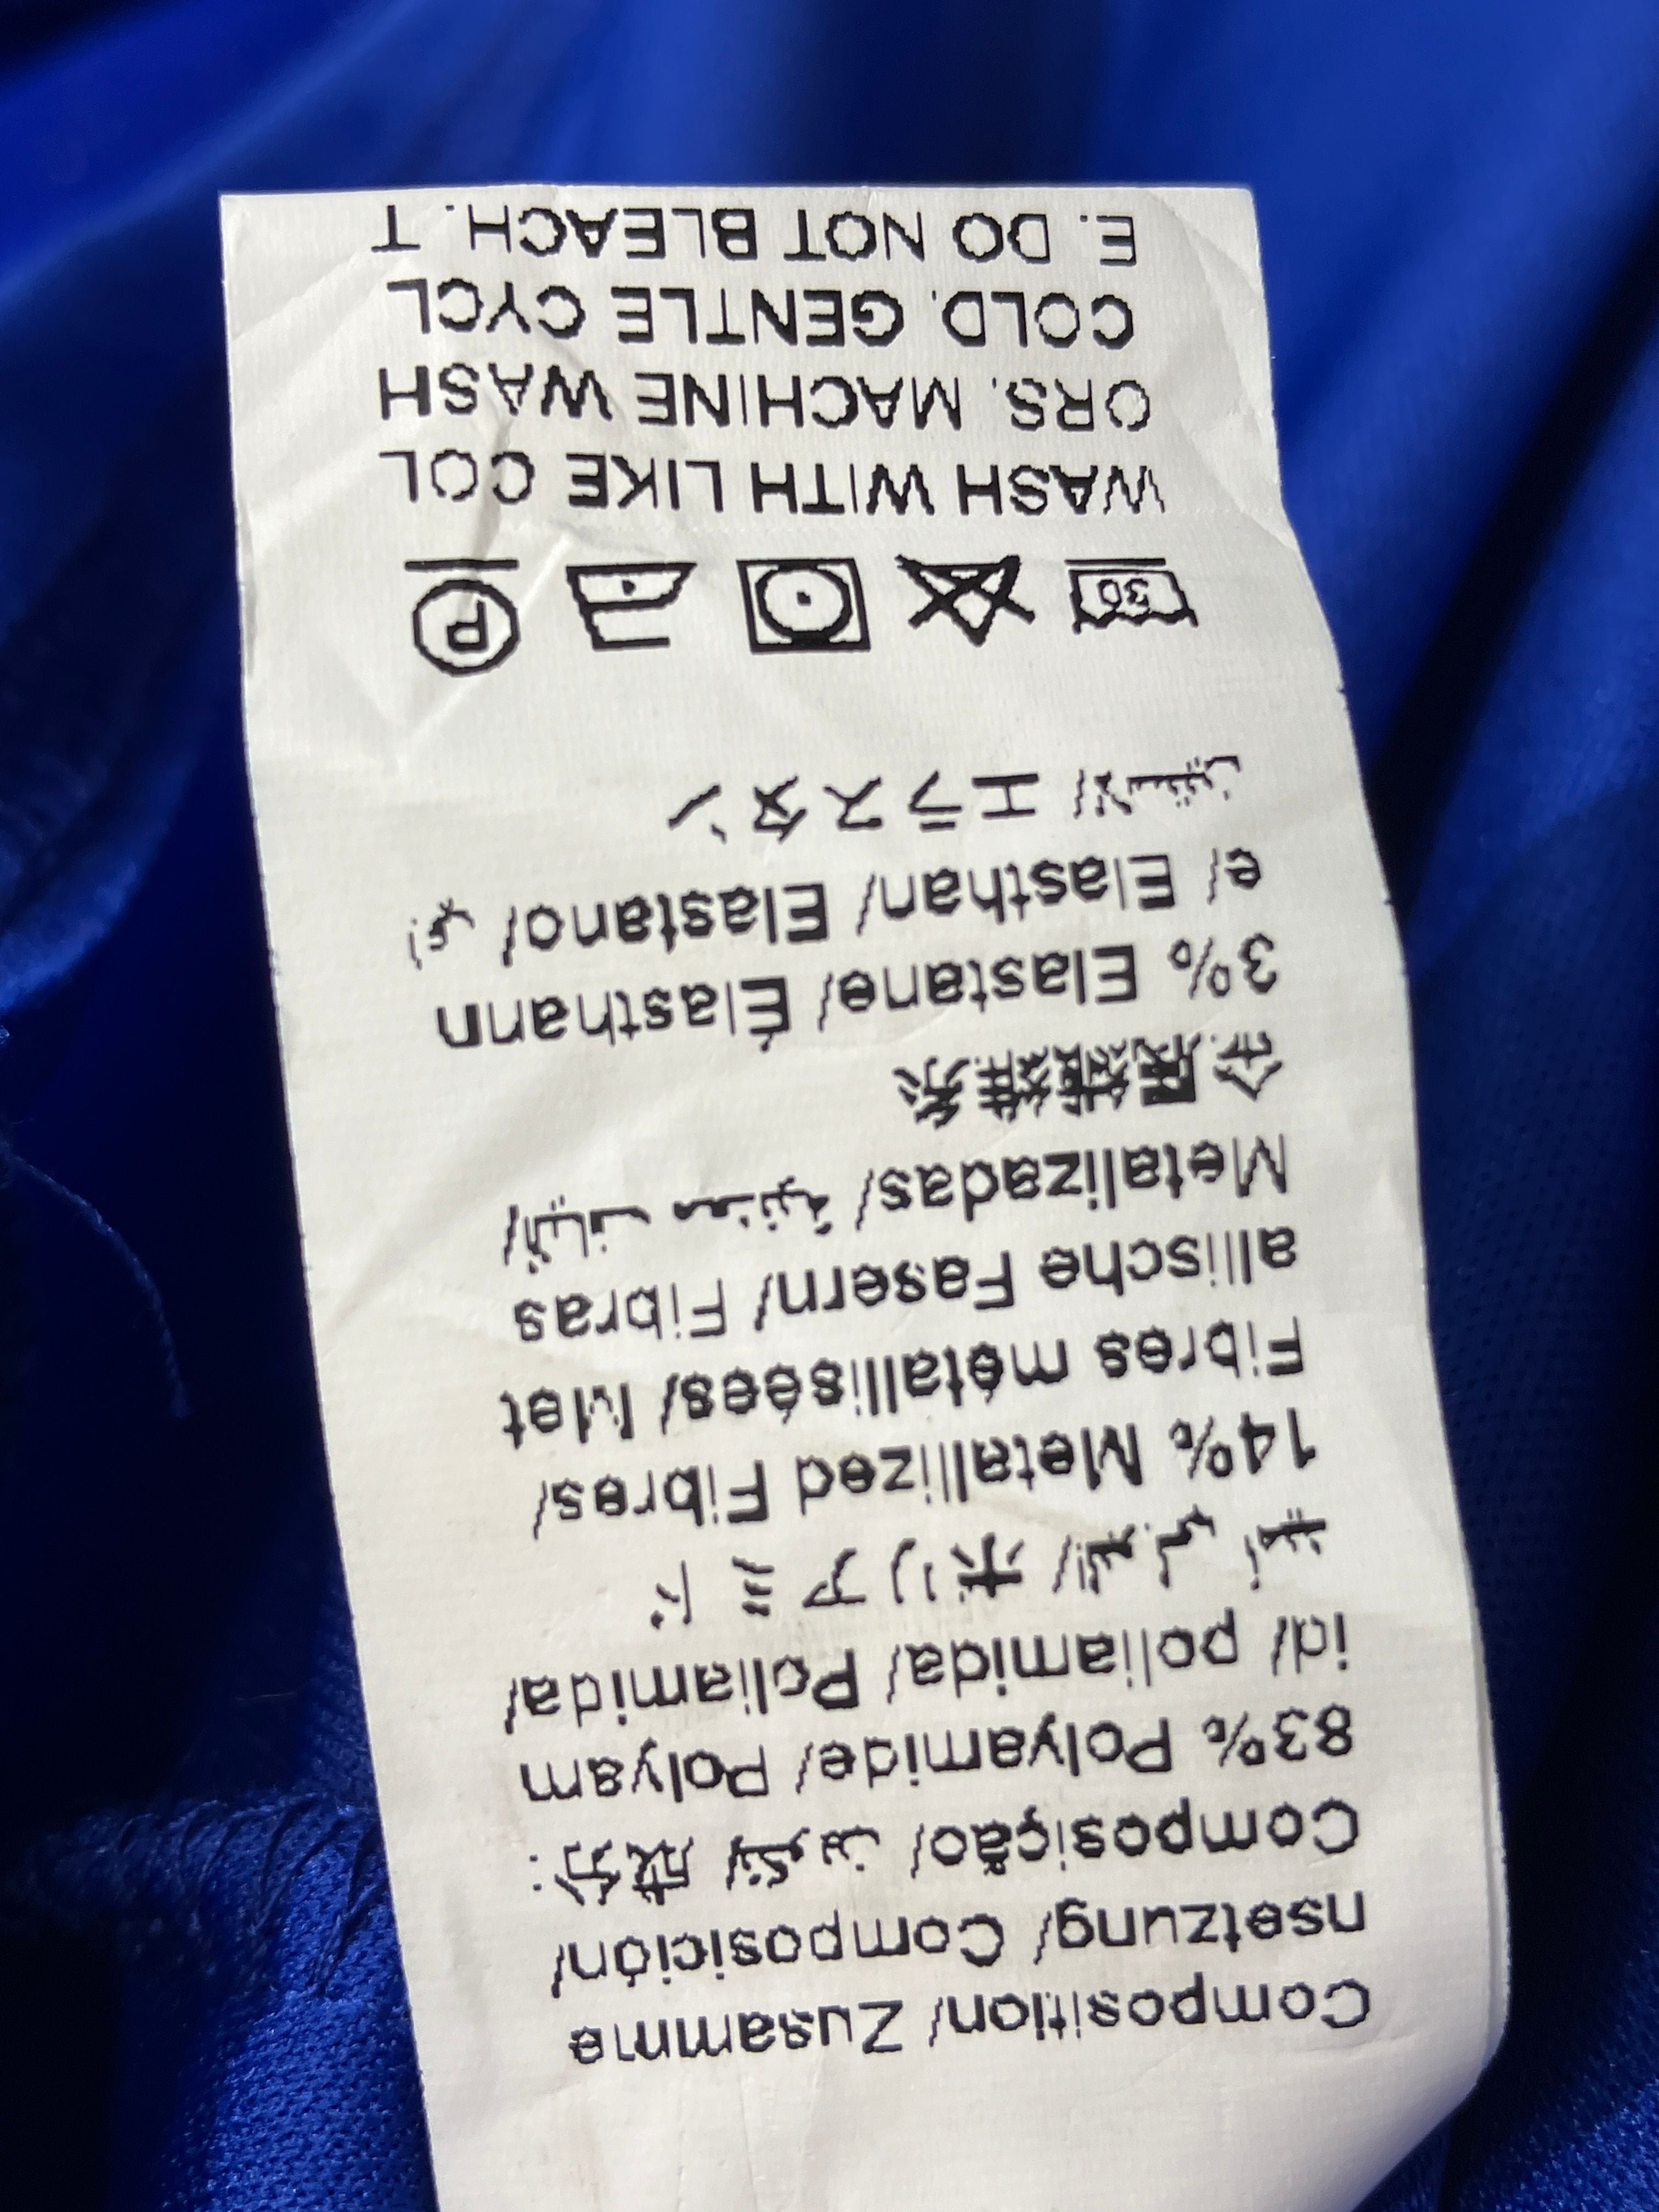 Composition/ Zusamme
nsetzung/ Composición/
Composição/ تكوين/ 成分:
83% Polyamide/ Polyam
id/ poliamida/ Poliamida/
ポリアミド
14% Metallized Fibres/
Fibres métallisées/ Met
allische Fasern/ Fibras
Metalizadas/ ألياف معدنية/
金属繊維系
3% Elastane/ Élasthann
e/ Elasthan/ Elastano/
エラスタン
30 P
WASH WITH LIKE COL
ORS. MACHINE WASH
COLD. GENTLE CYCL
E. DO NOT BLEACH. T